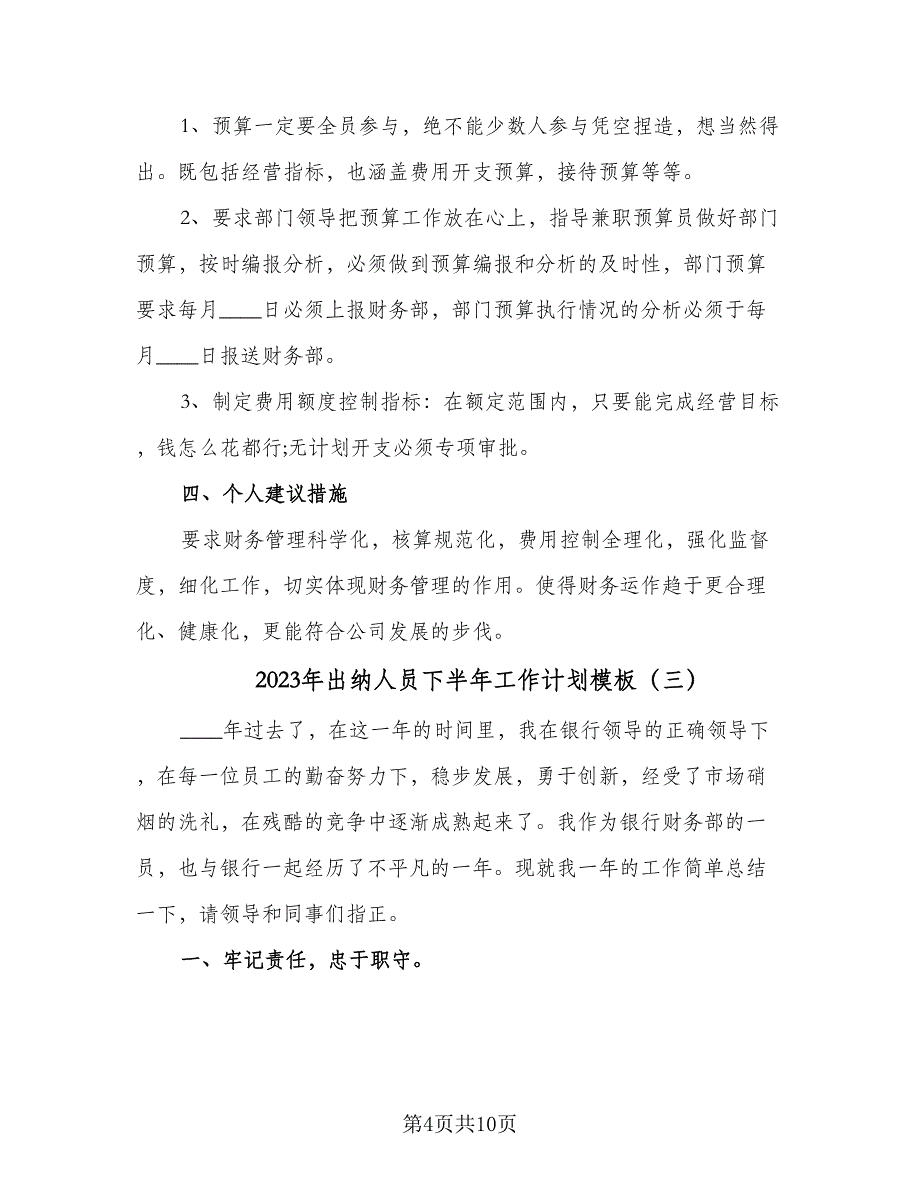 1、预算一定要全员参与，绝不能少数人参与凭空捏造，想当然得
出。既包括经营指标，也涵盖费用开支预算，接待预算等等。
2、要求部门领导把预算工作放在心上，指导兼职预算员做好部门
预算，按时编报分析，必须做到预算编报和分析的及时性，部门预算
要求每月____日必须上报财务部，部门预算执行情况的分析必须于每
月____日报送财务部。
3、制定费用额度控制指标：在额定范围内，只要能完成经营目标
，钱怎么花都行;无计划开支必须专项审批。
四、个人建议措施
要求财务管理科学化，核算规范化，费用控制全理化，强化监督
度，细化工作，切实体现财务管理的作用。使得财务运作趋于更合理
化、健康化，更能符合公司发展的步伐。
2023年出纳人员下半年工作计划模板（三）
____年过去了，在这一年的时间里，我在银行领导的正确领导下
，在每一位员工的勤奋努力下，稳步发展，勇于创新，经受了市场硝
烟的洗礼，在残酷的竞争中逐渐成熟起来了。我作为银行财务部的一
员，也与银行一起经历了不平凡的一年。现就我一年的工作简单总结
一下，请领导和同事们指正。
一、牢记责任，忠于职守。
第4页共10页